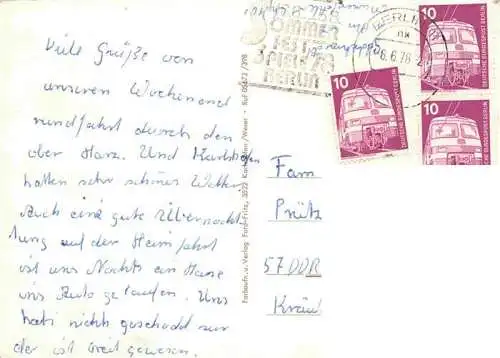 Viele Grüße von
unserer Wochenend
rundfahrt durch den
ober Harz. Und Karlshafen
hatten sehr schönes Wetter
Auch eine gute Übernach
tung auf der Heimfahrt
ist uns Nachts ein Hase
ins Auto gelaufen. Uns
hat nichts geschadet nur
der ist weit gewesen.
SOMMER
FEST
SPIELE 78
BERLIN
BERLIN
6.6.78
10
DEUTSCHE BUNDESPOST BERLIN
10
DEUTSCHE BUNDESPOST BERLIN
10
DEUTSCHE BUNDESPOST BERLIN
Farbaufn. u. Verlag Foto-Fritz, 3522 Karlshafen/Weser · Ruf 05672/398
Fam
Prütz
57 DDR